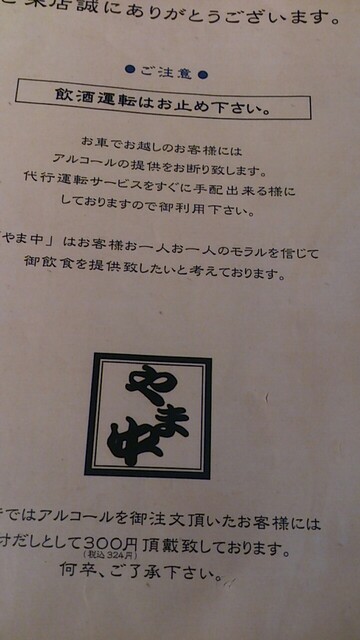 ご来店誠にありがとうございます。
●ご注意●
飲酒運転はお止め下さい。
お車でお越しのお客様には
アルコールの提供をお断り致します。
代行運転サービスをすぐに手配出来る様に
しておりますので御利用下さい。
「やま中」はお客様お一人お一人のモラルを信じて
御飲食を提供致したいと考えております。
やま中
ではアルコールを御注文頂いたお客様には
だしとして300円頂戴致しております。
(税込324円)
何卒、ご了承下さい。